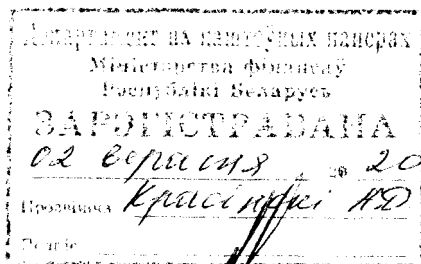 Дэпартамент па каштоўных паперах
Міністэрства фінансаў
Рэспублікі Беларусь
ЗАРЭГІСТРАВАНА
02 верасня 20 20
Прозвішча Красінскі НД
Подпіс